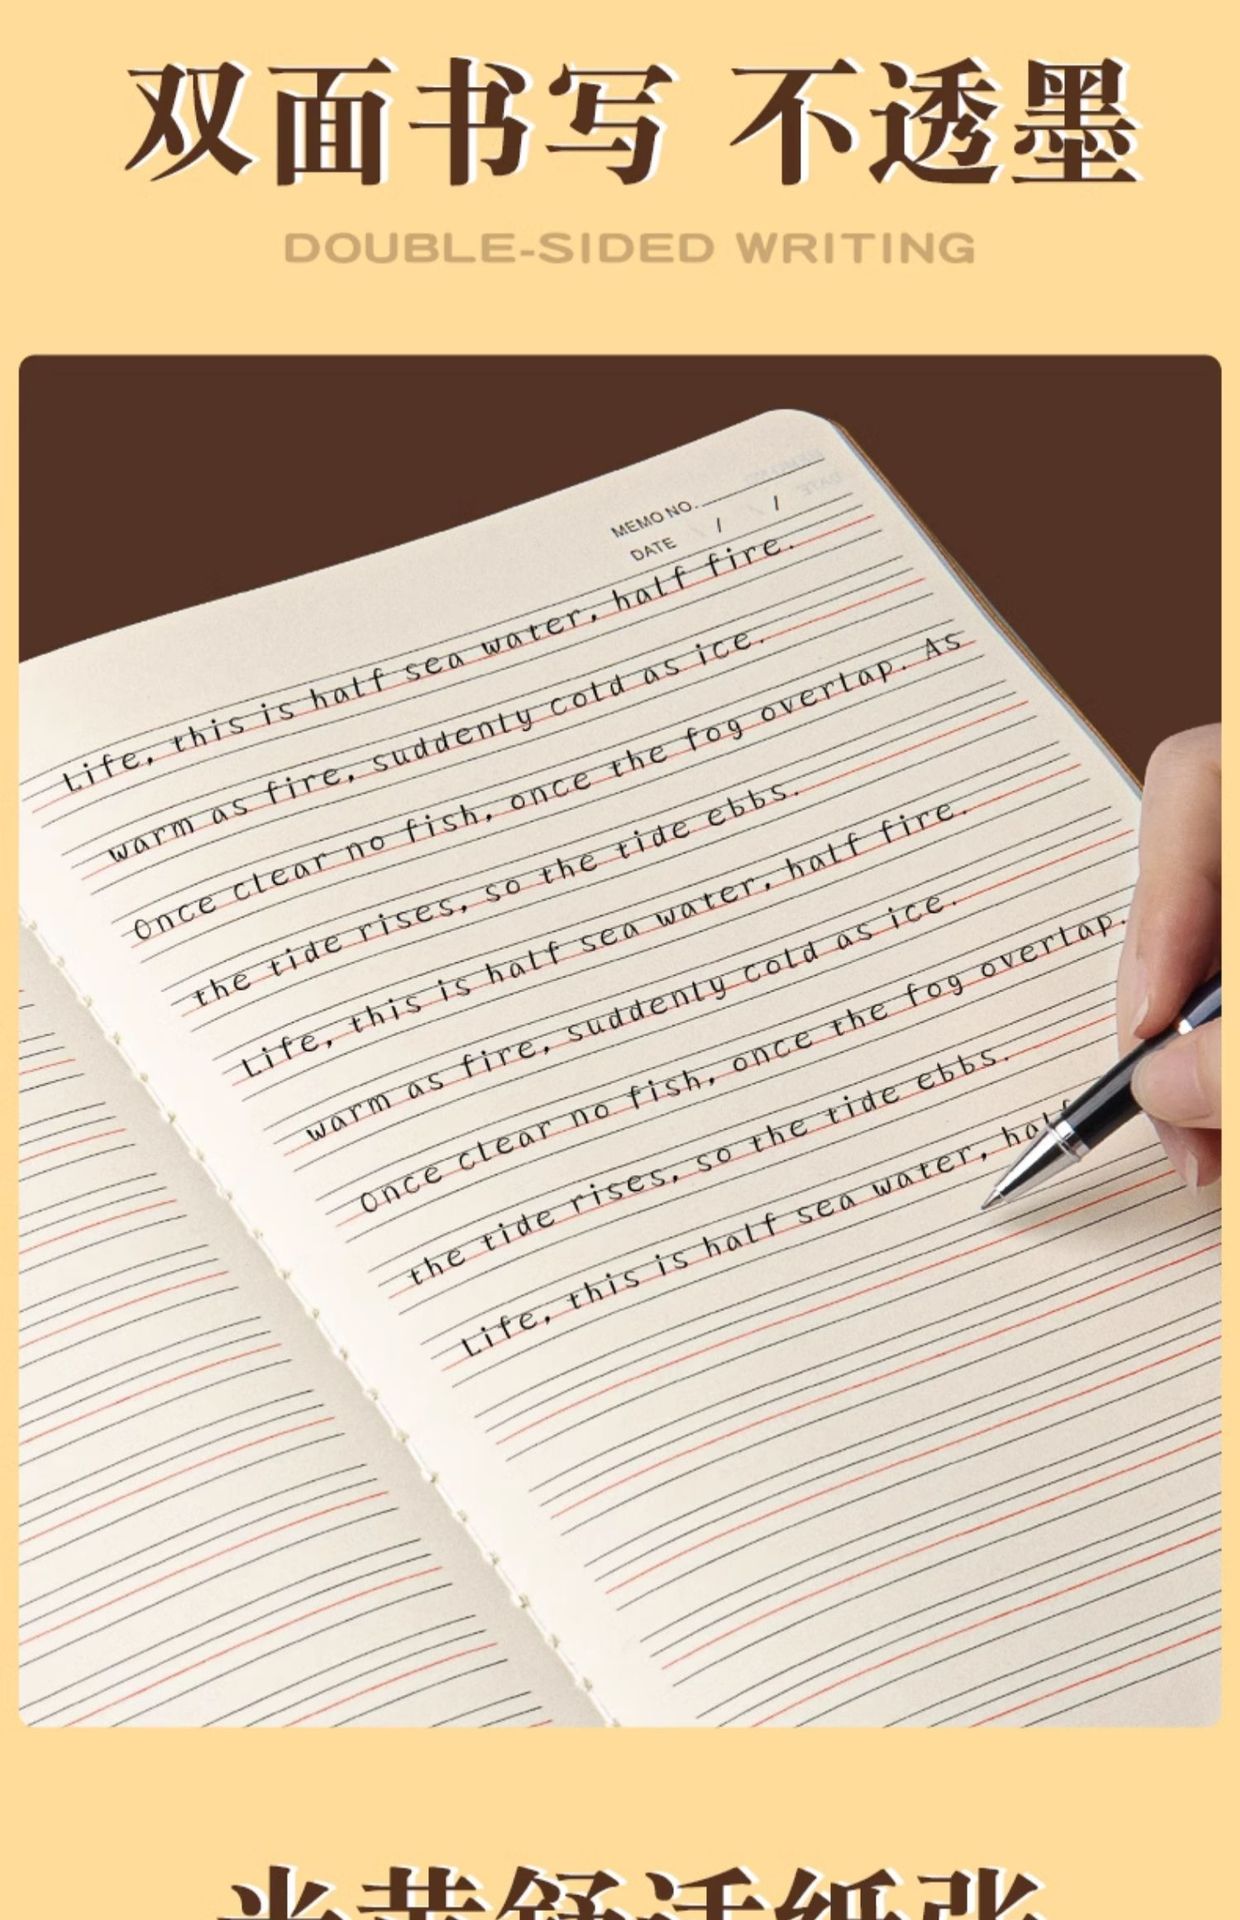 双面书写 不透墨
DOUBLE-SIDED WRITING
MEMO NO.
DATE / /
Life, this is half sea water, half fire.
warm as fire, suddenly cold as ice.
Once clear no fish, once the fog overlap. As
the tide rises, so the tide ebbs.
Life, this is half sea water, half fire.
warm as fire, suddenly cold as ice.
Once clear no fish, once the fog overlap.
the tide rises, so the tide ebbs.
Life, this is half sea water, half
米黄舒适纸张